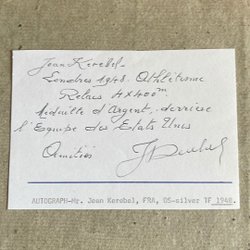 Jean Kerebel.
Londres 1948. Athlétisme
Relais 4X400m
Médaille d'Argent. derrière
l'Equipe des Etats Unis
Amitiés
JKerebel
AUTOGRAPH-Mr. Jean Kerebel, FRA, OS-silver TF 1948.